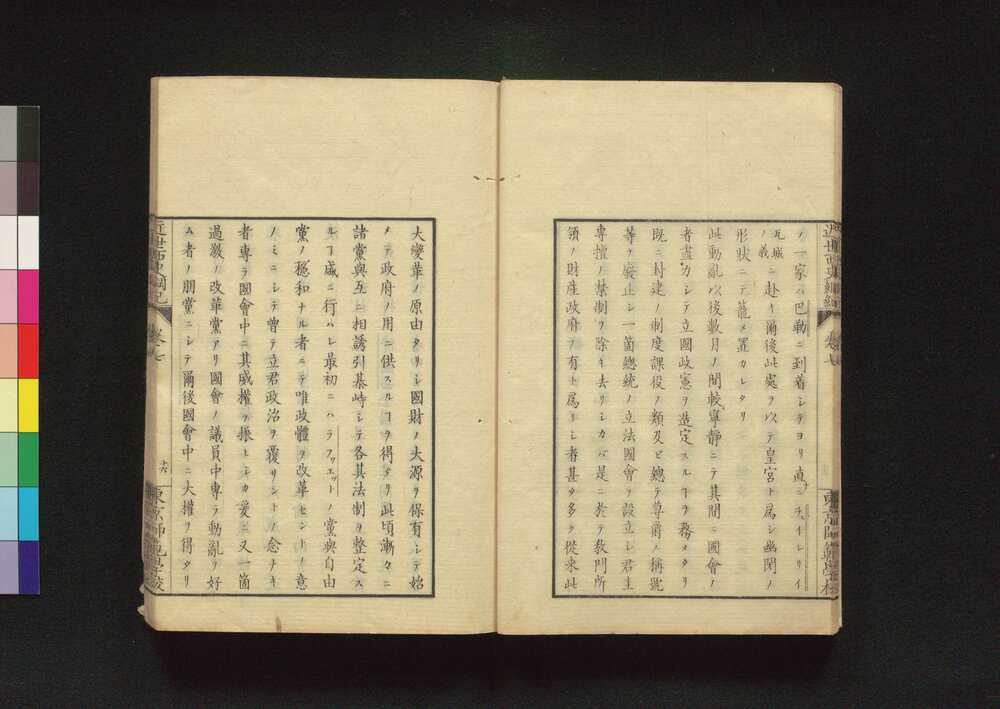 ノ一家ハ巴勒ニ到着シテヨリ直ニチイレリイ
瓦城ノ義ニ赴キ爾後此處ヲ以テ皇宮ト爲シ幽閉ノ
形狀ニテ籠メ置カレタリ
此動亂以後數月ノ間較寧靜ニテ其間ニ國會ノ
者盡力シテ立國政憲ヲ造定スルヿヲ務メタリ
既ニ封建ノ制度課役ノ類及ビ總テ尊爵ノ稱號
等ヲ廢止シ一箇總統ノ立法國會ヲ設立シ君主
專擅ノ禁制ヲ除キ去リシカバ是ニ於テ敎門所
領ノ財産政府ノ有ト爲リシ者甚タ多ク從來此
近世西史綱紀
卷七
東京師範學校
大變革ノ原由タリシ國財ノ大源ヲ保有シテ始
メテ政府ノ用ニ供スルヿヲ得タリ此頃漸クニ
諸黨與互ニ相誘引棊峙シテ各其法制ヲ整定ス
ルヿ盛ニ行ハレ最初ニハラフアエットノ黨與自由
黨ノ穩和ナル者ニテ唯政體ヲ改革セントノ意
ノミニシテ曾テ立君政治ヲ覆サントノ念ナキ
者專ラ國會中ニ其威權ヲ振ヒシカ爰ニ又一箇
過激ノ改革黨アリ國會ノ議員中專ラ動亂ヲ好
ム者ノ朋黨ニシテ爾後國會中ニ大權ヲ得タリ
近世西史綱紀
卷七
十六
東京師範學校